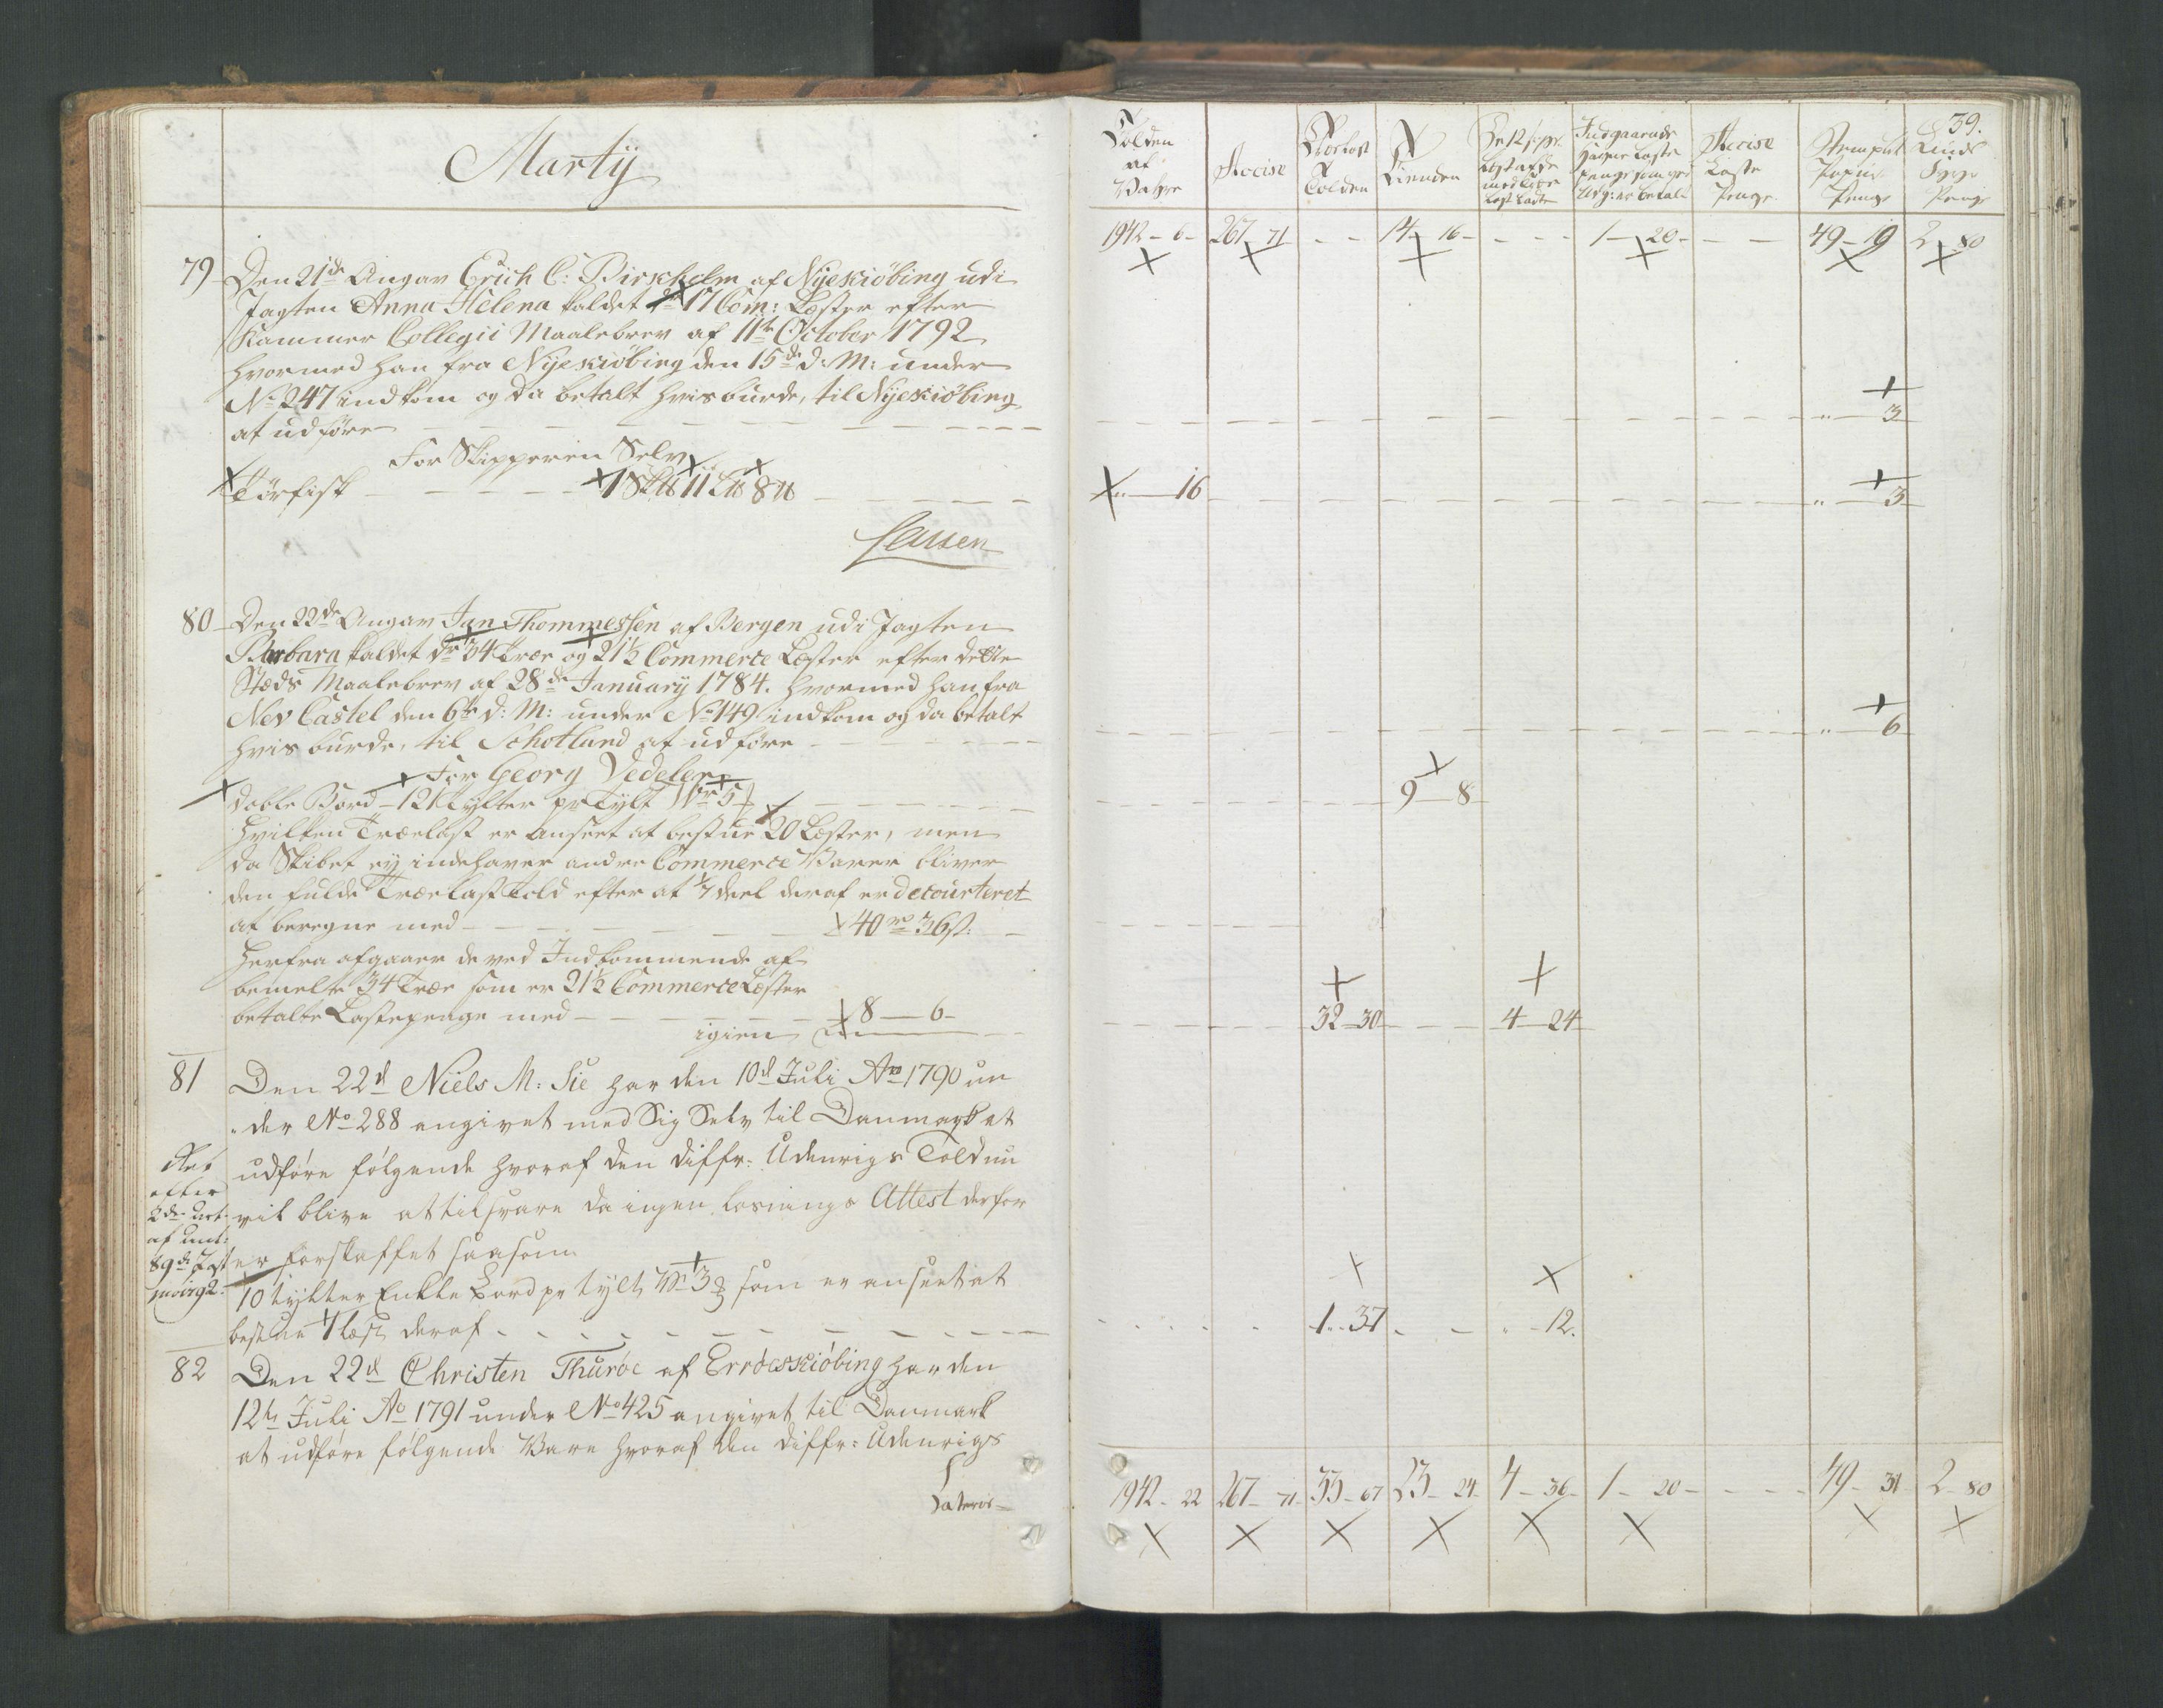 Martÿ
79 Den 21de Angav Erich C: Birkholm af Nÿekiöbing udi
Jagten Anna Helena kaldet dr 17 Com: Læster efter
Kammer Collegii Maalebrev af 11te October 1792
hvormed han fra Nÿekiöbing den 15de d: M: under
No 247 indkom og da betalt hvis burde, til Nÿekiöbing
at udföre
For Skipperen Selv
Törfisk 1 Sk℔ 11 L℔ 8 ℔
80 Den 22de Angav Jan Thommessen af Bergen udi Jagten
Barbara kaldet dr 34 Træ og 21½ Commerce Læster efter dette
Stæds Maalebrev af 28de Januarÿ 1784. hvormed han fra
Nev Castel den 6te d: M: under No 149 indkom og da betalt
hvis burde, til Schotland at udföre
For Georg Vedeler
doble Bord 121 Tylter pr Tylt
hvilken Trælast er anseet at bestaae 20 Læster, men
da Skibet ej indehaver andre Commerce Varer bliver
den fulde Trælast Told efter at deel deraf er decourteret
at beregne med 40 rd 36 s:
herfra afgaaer de ved Indkommende af
bemelte 34 Træ som er 21½ Commerce Læster
betalte Lastepenge med 8 - 6
igien
81 Den 22d Niels M: Sie har den 10d Juli Ao 1790 un
der No 288 angivet med Sig Selv til Danmark at
udföre fölgende hvoraf den differ: Udenrigs Told nu
vil blive at tilsvare da ingen losnings Attest derfor
er forskaffet saasom
efter
2de
af
89de Post
10 tylter Enkle Bord pr tylt som er anseet at
bestaae 1 læst deraf
82 Den 22d Christen Thuröe af Erröeskiöbing har den
12te Juli Ao 1791 under No 425 angivet til Danmark
at udföre fölgende Vare hvoraf den differ: Udenrigs
Lateris
39.
Tolden af Vahre
Accise
Trælast Tolden
Tienden
Accise Læste Penge
Stempel Papiir Penge
1942 - 6 267 - 71 14 - 16 1 - 20 49 - 19 2 - 80
3
16 3
6
9 - 8
32 - 30 4 - 24
1 - 37 12.
1942 - 22 267 - 71 33 - 67 23 - 24 4 - 36 1 - 20 49 - 31 2 - 80